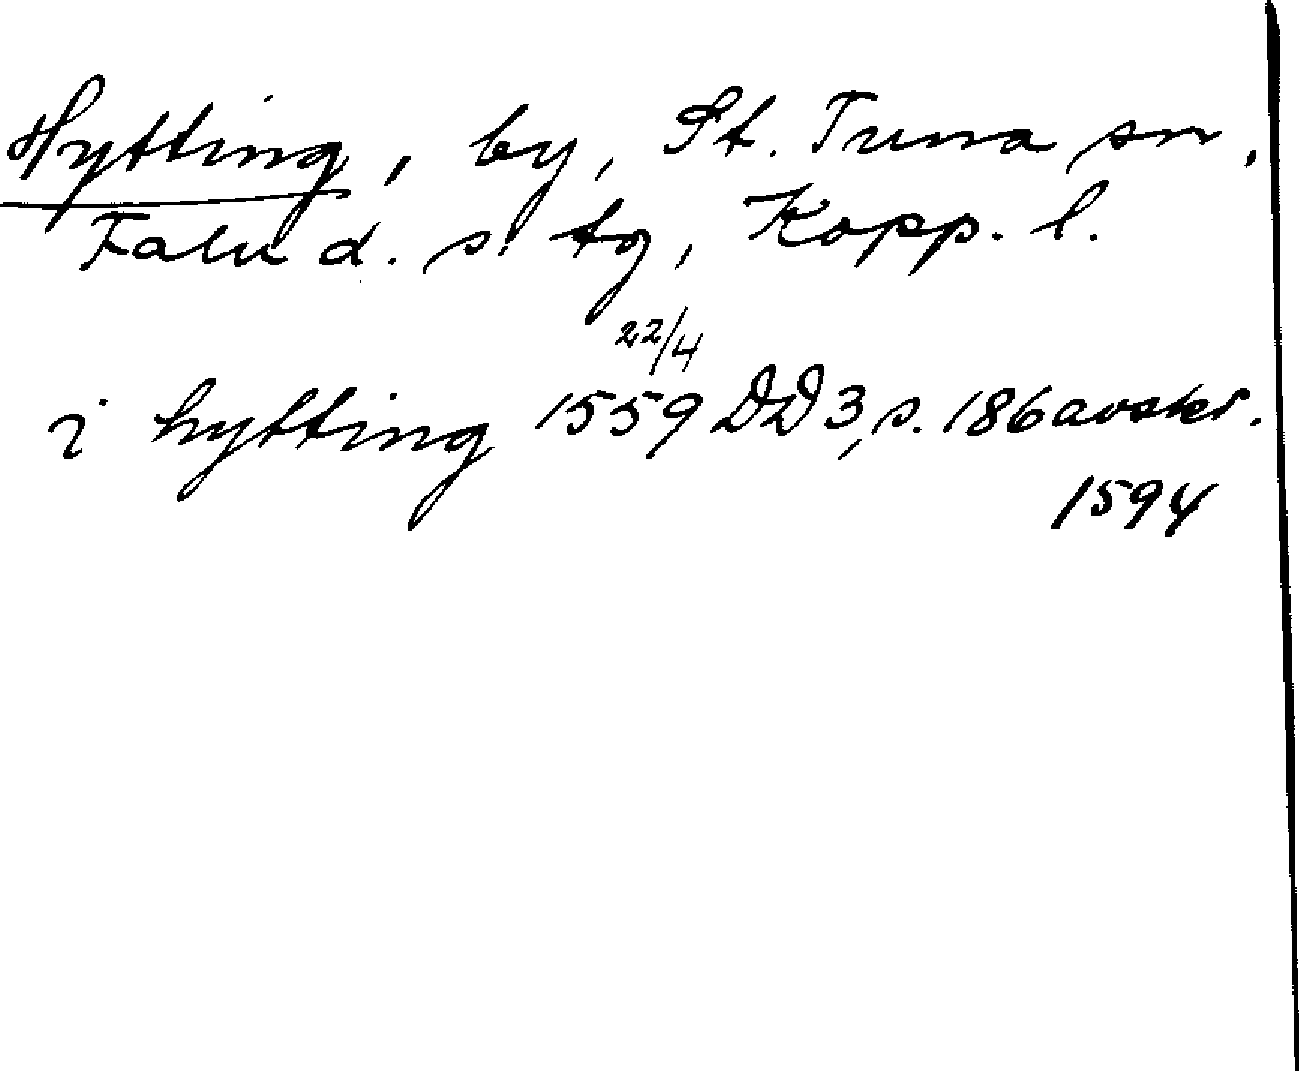 Hytting, by, St. Tuna sn,
Falu d. s. tg, Kopp. l.
22/4
i hytting 1559 DD 3, s. 186 avskr.
1594